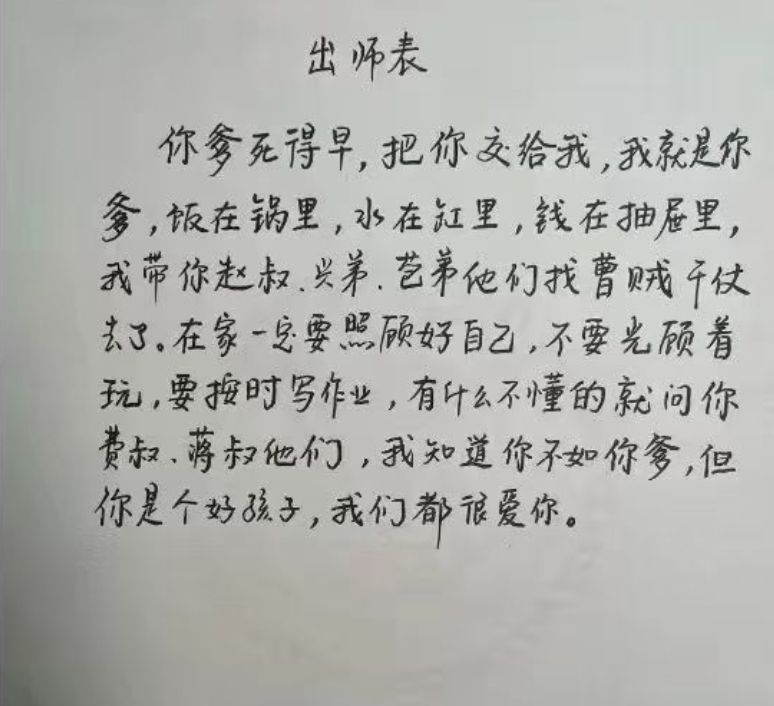 出师表
你爹死得早,把你交给我,我就是你
爹,饭在锅里,水在缸里,钱在抽屉里,
我带你赵叔、兴弟、苞弟他们找曹贼干仗
去了。在家一定要照顾好自己,不要光顾着
玩,要按时写作业,有什么不懂的就问你
费叔、蒋叔他们,我知道你不如你爹,但
你是个好孩子,我们都很爱你。